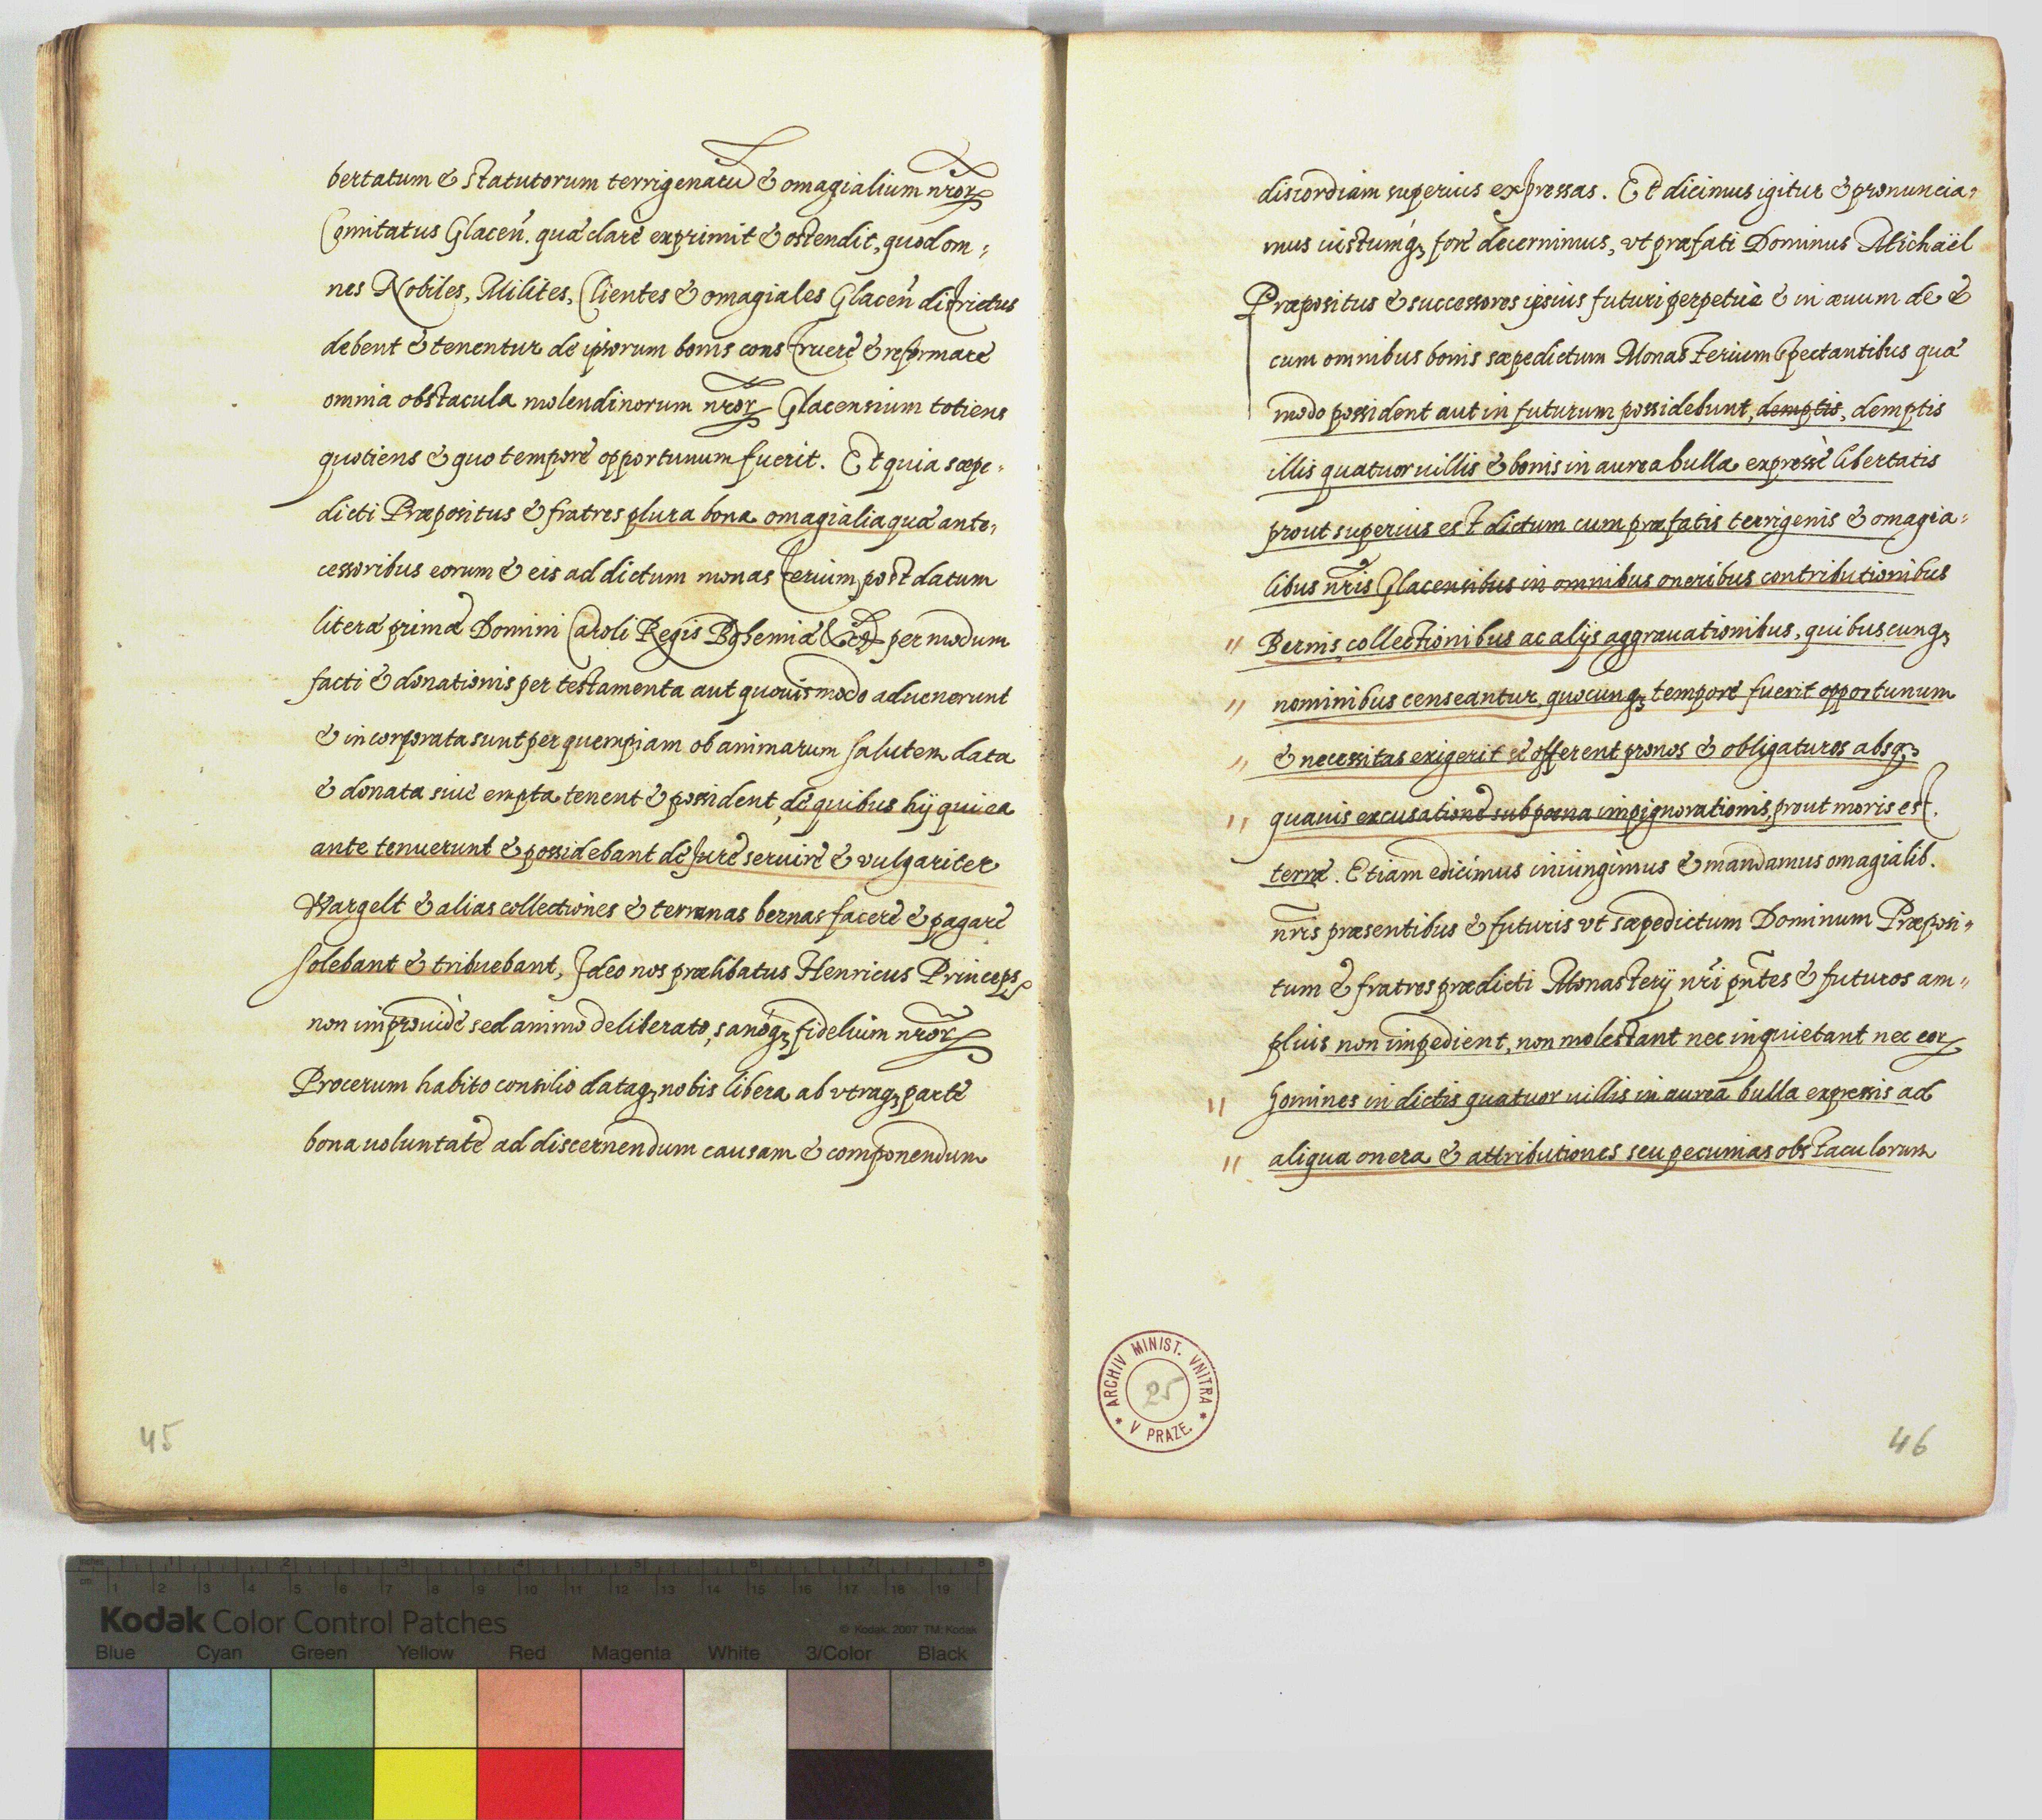 bertatum & statutorum terrigenarũ & omagialium nr̃oꝝ
Comitatus Glaceñ. quæ clarè exprimit & ostendit, quod om-
nes Nobiles, Milites, Clientes & omagiales Glaceñ districtus
debent & tenentur de ipsorum bonis construere & reformare
omnia obstacula molendinorum nr̃oꝝ Glacensium totiens
quotiens & quo tempore opportunum fuerit. Et quia sæpe-
dicti Præpositus & fratres plura bona omagialia quæ ante-
cessoribus eorum & eis ad dictum monasterium post datum
literæ primæ Domini Caroli Regis Bohemiæ &c per modum
facti & donationis per testamenta aut quovismodo advenerunt
& incorporata sunt per quempiam ob animarum salutem data
& donata sive empta tenent & possident, de quibus hÿ qui ea
ante tenuerunt & possidebant de jure servire & vulgariter
Wargelt & alias collectiones & terrenas bernas facere & pagare
solebant & tribuebant, Ideo nos prælibatus Henricus Princeps
non improuidè sed animo deliberato, sanoq́ꝫ fidelium nr̃oꝝ
Procerum habito consilio dataqꝫ nobis libera ab vtraqꝫ parte
bona uoluntate ad discernendum causam & componendum
45
discordiam superius expressas. Et dicimus igitur & pronuncia-
mus iustumq́ꝫ fore decernimus, vt præfati Dominus Michaël
Præpositus & successores ipsius futuri perpetuè & in æuum de &
cum omnibus bonis sæpedictum Monasterium spectantibus quæ
modo possident aut in futurum possidebunt, demptis, demptis
illis quatuor uillis & bonis in aurea bulla expressè libertatis
prout superius est dictum cum præfatis terrigenis & omagia-
libus nr̃is Glacensibus in omnibus oneribus contributionibus
" Bernis collectionibus ac alÿs aggrauationibus, quibuscunqꝫ
" nominibus censeantur quocunqꝫ tempore fuerit opportunum
" & necessitas exigerit se offerent pronos & obligaturos absqꝫ
" quauis excusatione sub pœna impignorationis, prout moris est
terræ. Etiam edicimus iniungimus & mandamus omagialib.
nr̃is præsentibus & futuris vt sæpedictum Dominum Præposi-
tum & fratres prædicti Monasterÿ nr̃i pñtes & futuros am-
plius non impedient, non molestant nec inquietant nec eoꝝ
" homines in dictis quatuor uillis in aurea bulla expressis ad
" aliqua onera & attributiones seu pecunias obstaculorum
ARCHIV MINIST. VNITRA
* V PRAZE *
25
46
inches 1 2 3 4 5 6 7 8
cm 1 2 3 4 5 6 7 8 9 10 11 12 13 14 15 16 17 18 19
Kodak Color Control Patches
© Kodak, 2007 TM: Kodak
Blue Cyan Green Yellow Red Magenta White 3/Color Black